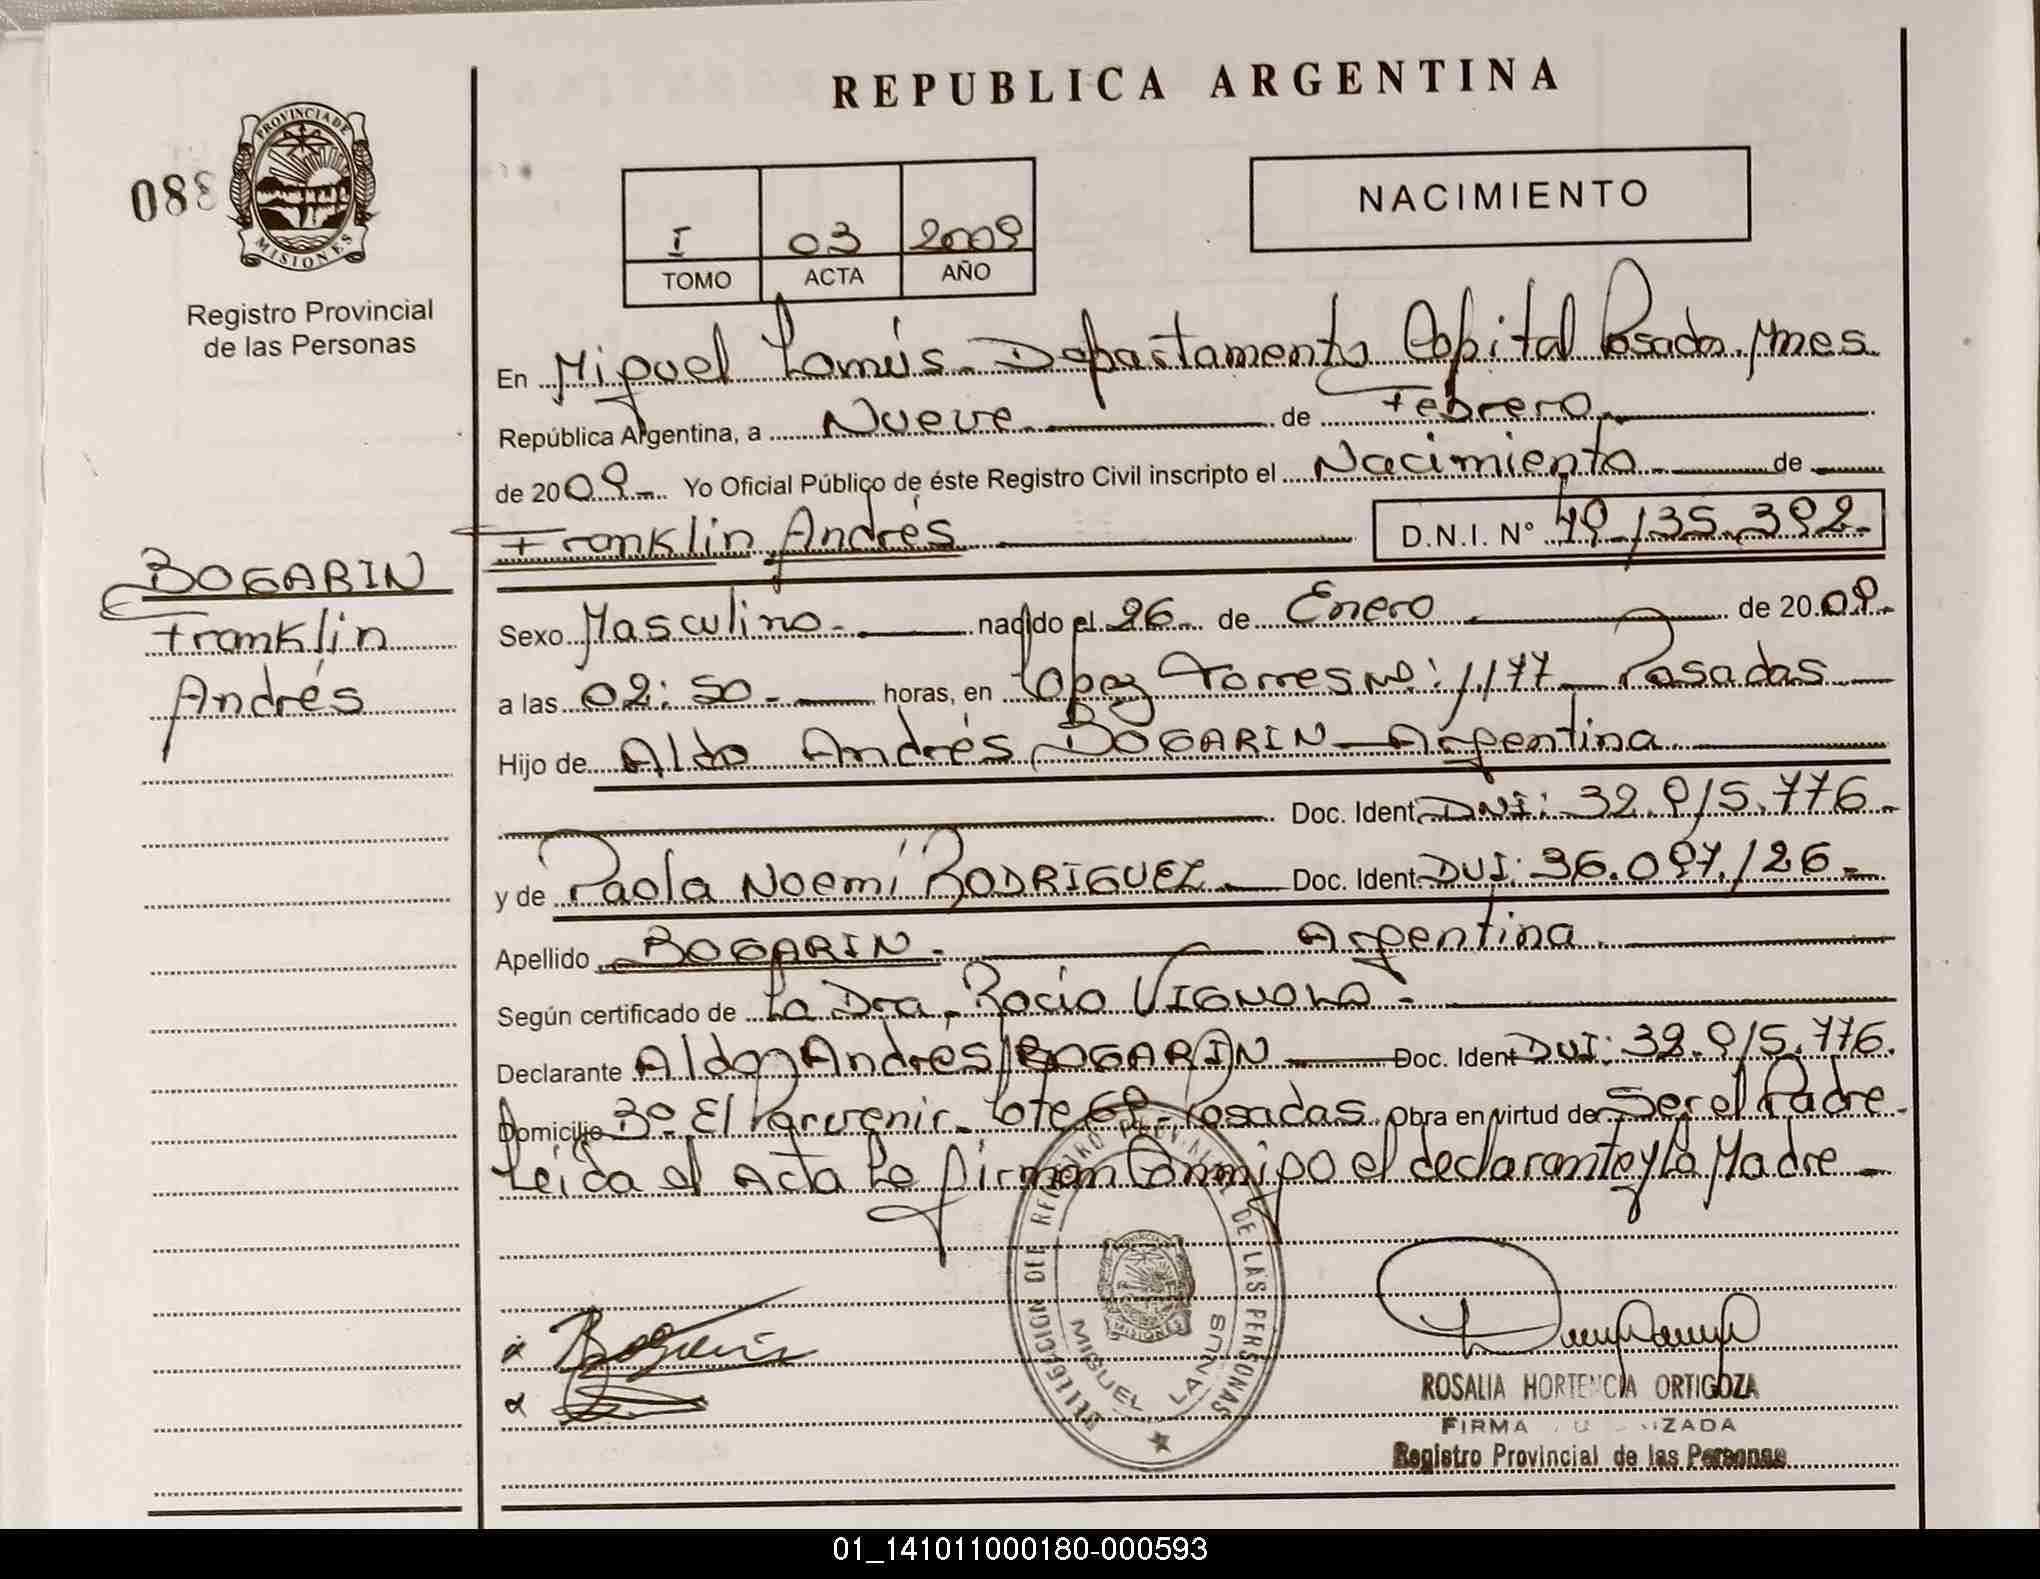 REPUBLICA ARGENTINA
PROVINCIA DE
MISIONES
088
Registro Provincial
de las Personas
I 03 2009
TOMO ACTA AÑO
NACIMIENTO
En Miguel Lanús - Departamento Capital Posadas. Mnes.
República Argentina, a Nueve de Febrero
de 2009 - Yo Oficial Público de éste Registro Civil inscripto el Nacimiento de
Franklin Andrés D.N.I. Nº 49.135.392.-
BOGARIN
Franklin
Andrés
Sexo Masculino.- nacido el 26 de Enero de 2009.-
a las 02:50.- horas, en López Torres Nº: 1177 - Posadas
Hijo de Aldo Andrés BOGARIN - Argentina.
Doc. Ident. DNI: 32.915.776.-
y de Paola Noemí RODRIGUEZ Doc. Ident. DNI: 36.097.126.-
Apellido BOGARIN.- Argentina.
Según certificado de La Dra. Rocío VIGNOLO.-
Declarante Aldo Andrés BOGARIN Doc. Ident DNI: 32.915.776.
Domicilio Bº El Porvenir - Lote 69 - Posadas. Obra en virtud de Ser el Padre -
Leída el Acta la firman Conmigo el declarante y la Madre -
REGISTRO PROVINCIAL DE LAS PERSONAS
MISIONES
MIGUEL LANUS
Bogarin
ROSALIA HORTENCIA ORTIGOZA
FIRMA
Registro Provincial de las Personas
01_141011000180-000593